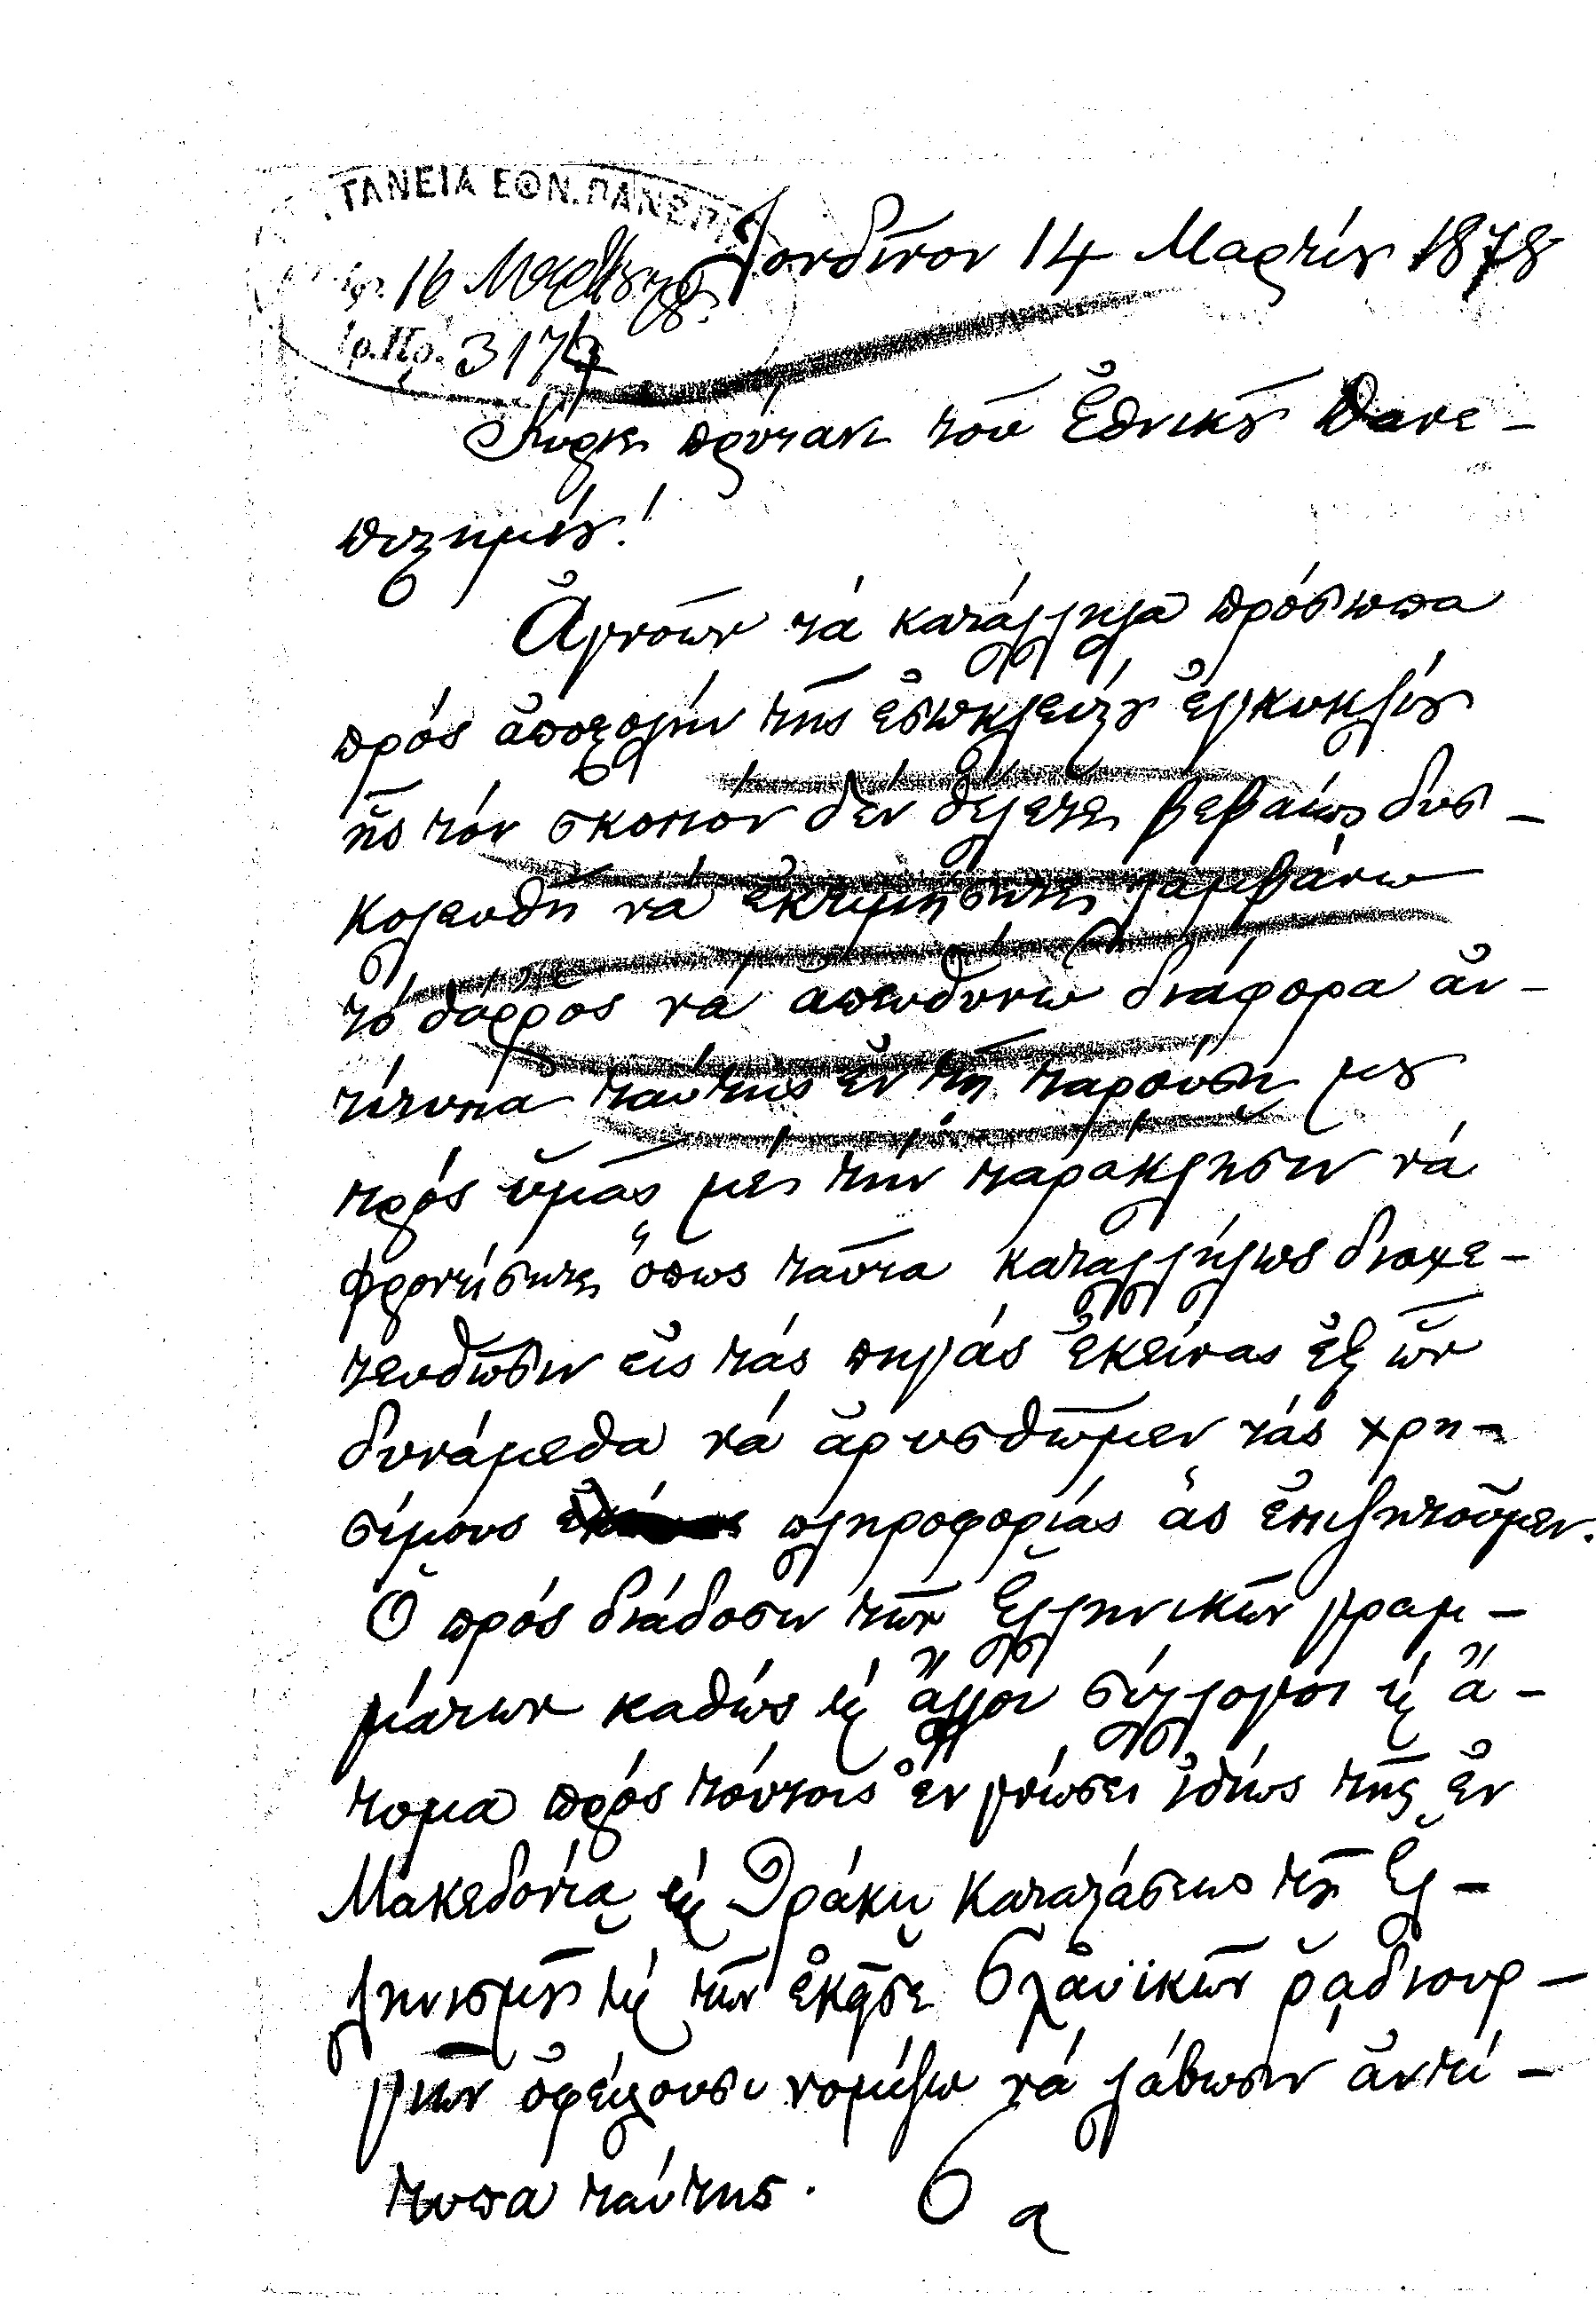 ΤΑΝΕΙΑ ΕΘΝ. ΠΑΝΕΠΙΣ
16 Μαρτίου 78
Πρ. 317
Λονδῖνον 14 Μαρτίου 1878
Κύριε πρύτανι τοῦ Ἐθνικοῦ Πανε-
πιστημίου!
Ἀγνοῶν τά κατάλληλα πρόσωπα
πρός ἀποστολήν τῆς ἐσωκλείστου ἐγκυκλίου
ἧς τόν σκοπόν δέν θέλετε βεβαίως δυσ-
κολευθῆ νά ἐκτιμήσητε, λαμβάνω
τό θάῤῥος νά ἀπευθύνω διάφορα ἀν-
τίτυπα ταύτης ἐν τῇ παρούσῃ μου
πρός ὑμᾶς μέ τήν παράκλησιν νά
φροντίσητε ὅπως ταῦτα καταλλήλως διοχε-
τευθῶσιν εἰς τάς πηγάς ἐκείνας ἐξ ὧν
δυνάμεθα νά ἀρυσθῶμεν τάς χρη-
σίμους πληροφορίας ἅς ἐπιζητοῦμεν.
Ὁ πρός διάδοσιν τῶν Ἑλληνικῶν γραμ-
μάτων καθώς καί ἄλλοι σύλλογοι καί ἄ-
τομα πρός τούτοις ἐν γνώσει ἰδίως τῆς ἐν
Μακεδονίᾳ καί Θράκῃ καταστάσεως τοῦ Ἑλ-
ληνισμοῦ καί τῶν ἐκεῖσε Σλαυϊκῶν ῥᾳδιουρ-
γιῶν ὀφείλουσι νομίζω νά λάβωσιν ἀντί-
τυπα ταύτης. 6 α